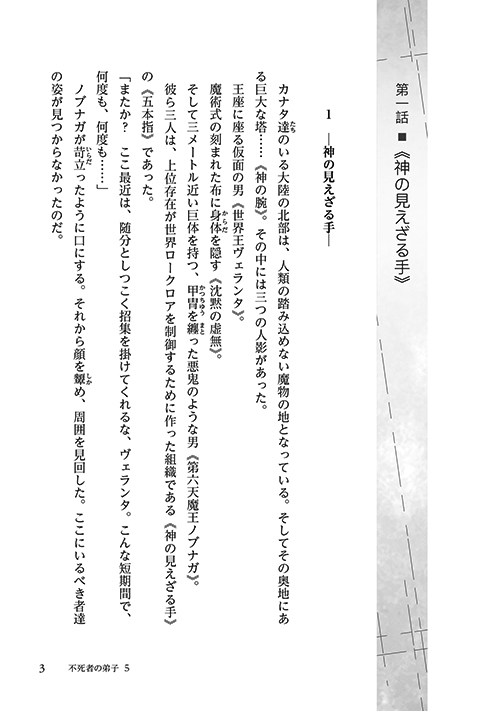 第一話■《神の見えざる手》
1　―神の見えざる手―
カナタ達のいる大陸の北部は、人類の踏み込めない魔物の地となっている。そしてその奥地にあ
る巨大な塔……《神の腕》。その中には三つの人影があった。
王座に座る仮面の男《世界王ヴェランタ》。
魔術式の刻まれた布に身体を隠す《沈黙の虚無》。
そして三メートル近い巨体を持つ、甲冑を纏った悪鬼のような男《第六天魔王ノブナガ》。
彼ら三人は、上位存在が世界ロークロアを制御するために作った組織である《神の見えざる手》
の《五本指》であった。
「またか？　ここ最近は、随分としつこく招集を掛けてくれるな、ヴェランタ。こんな短期間で、
何度も、何度も……」
ノブナガが苛立ったように口にする。それから顔を顰め、周囲を見回した。ここにいるべき者達
の姿が見つからなかったのだ。
3　不死者の弟子 5